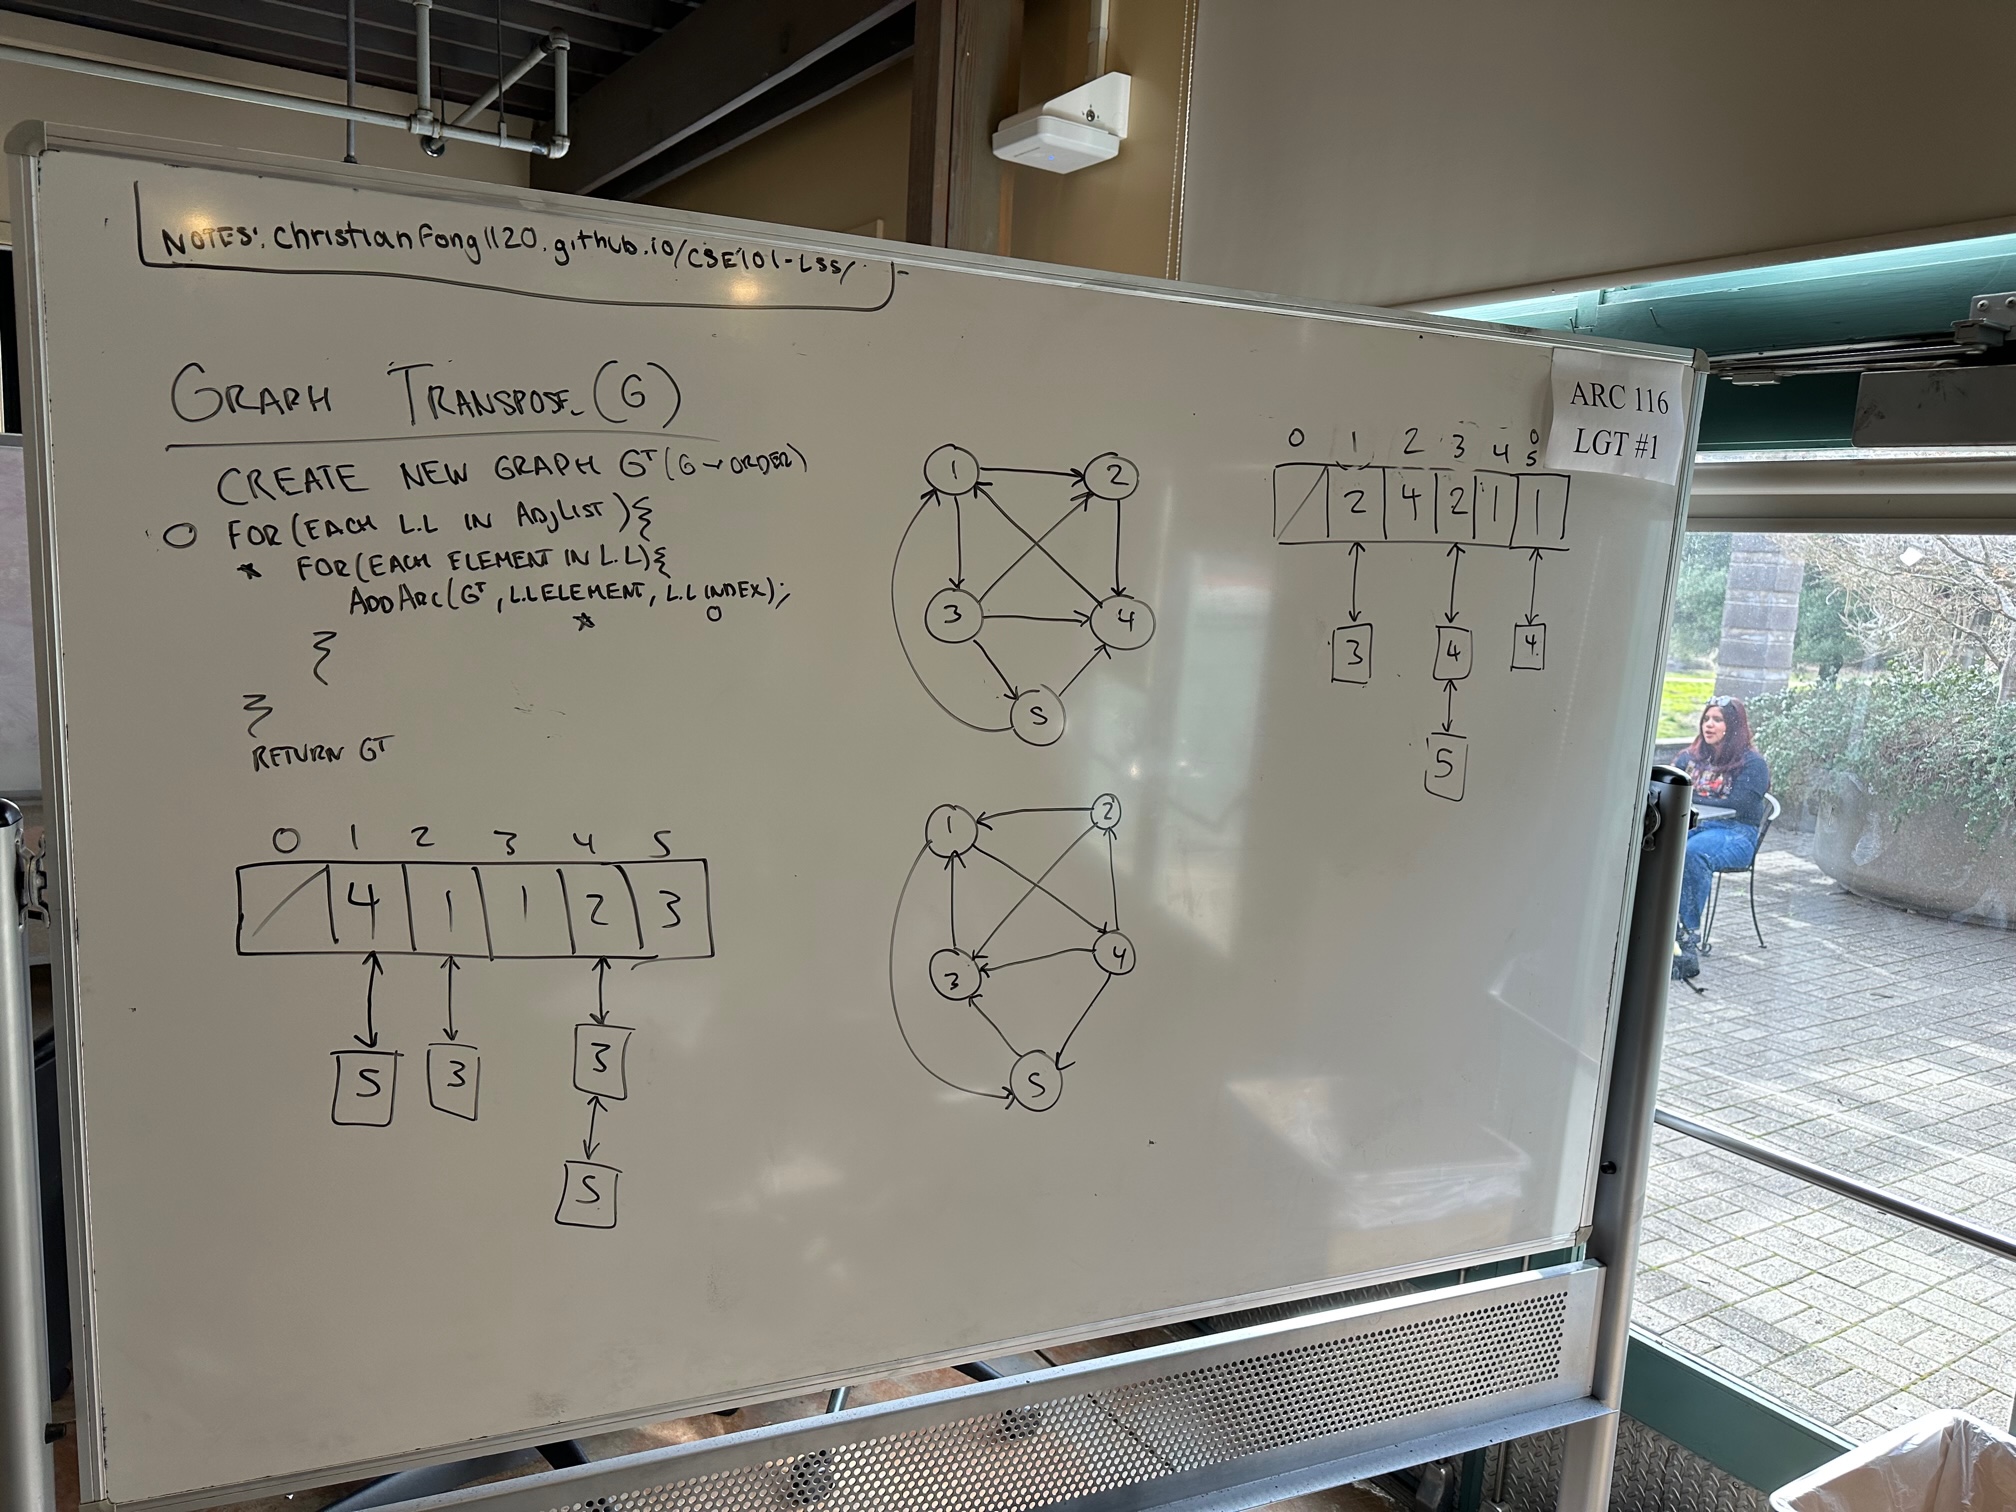 NOTES: christianfong1120.github.io/CSE101-LSS/
GRAPH TRANSPOSE (G)
CREATE NEW GRAPH GT (G → ORDER)
FOR (EACH L.L IN ADJLIST) {
* FOR (EACH ELEMENT IN L.L) {
ADDARC(GT, L.L ELEMENT, L.L INDEX);
}
}
RETURN GT
0 1 2 3 4 5
4 1 1 2 3
5 3 3
5
1 2
3 4
5
1 2
3 4
5
ARC 116
LGT #1
0 1 2 3 4 5
2 4 2 1 1
3 4 4
5